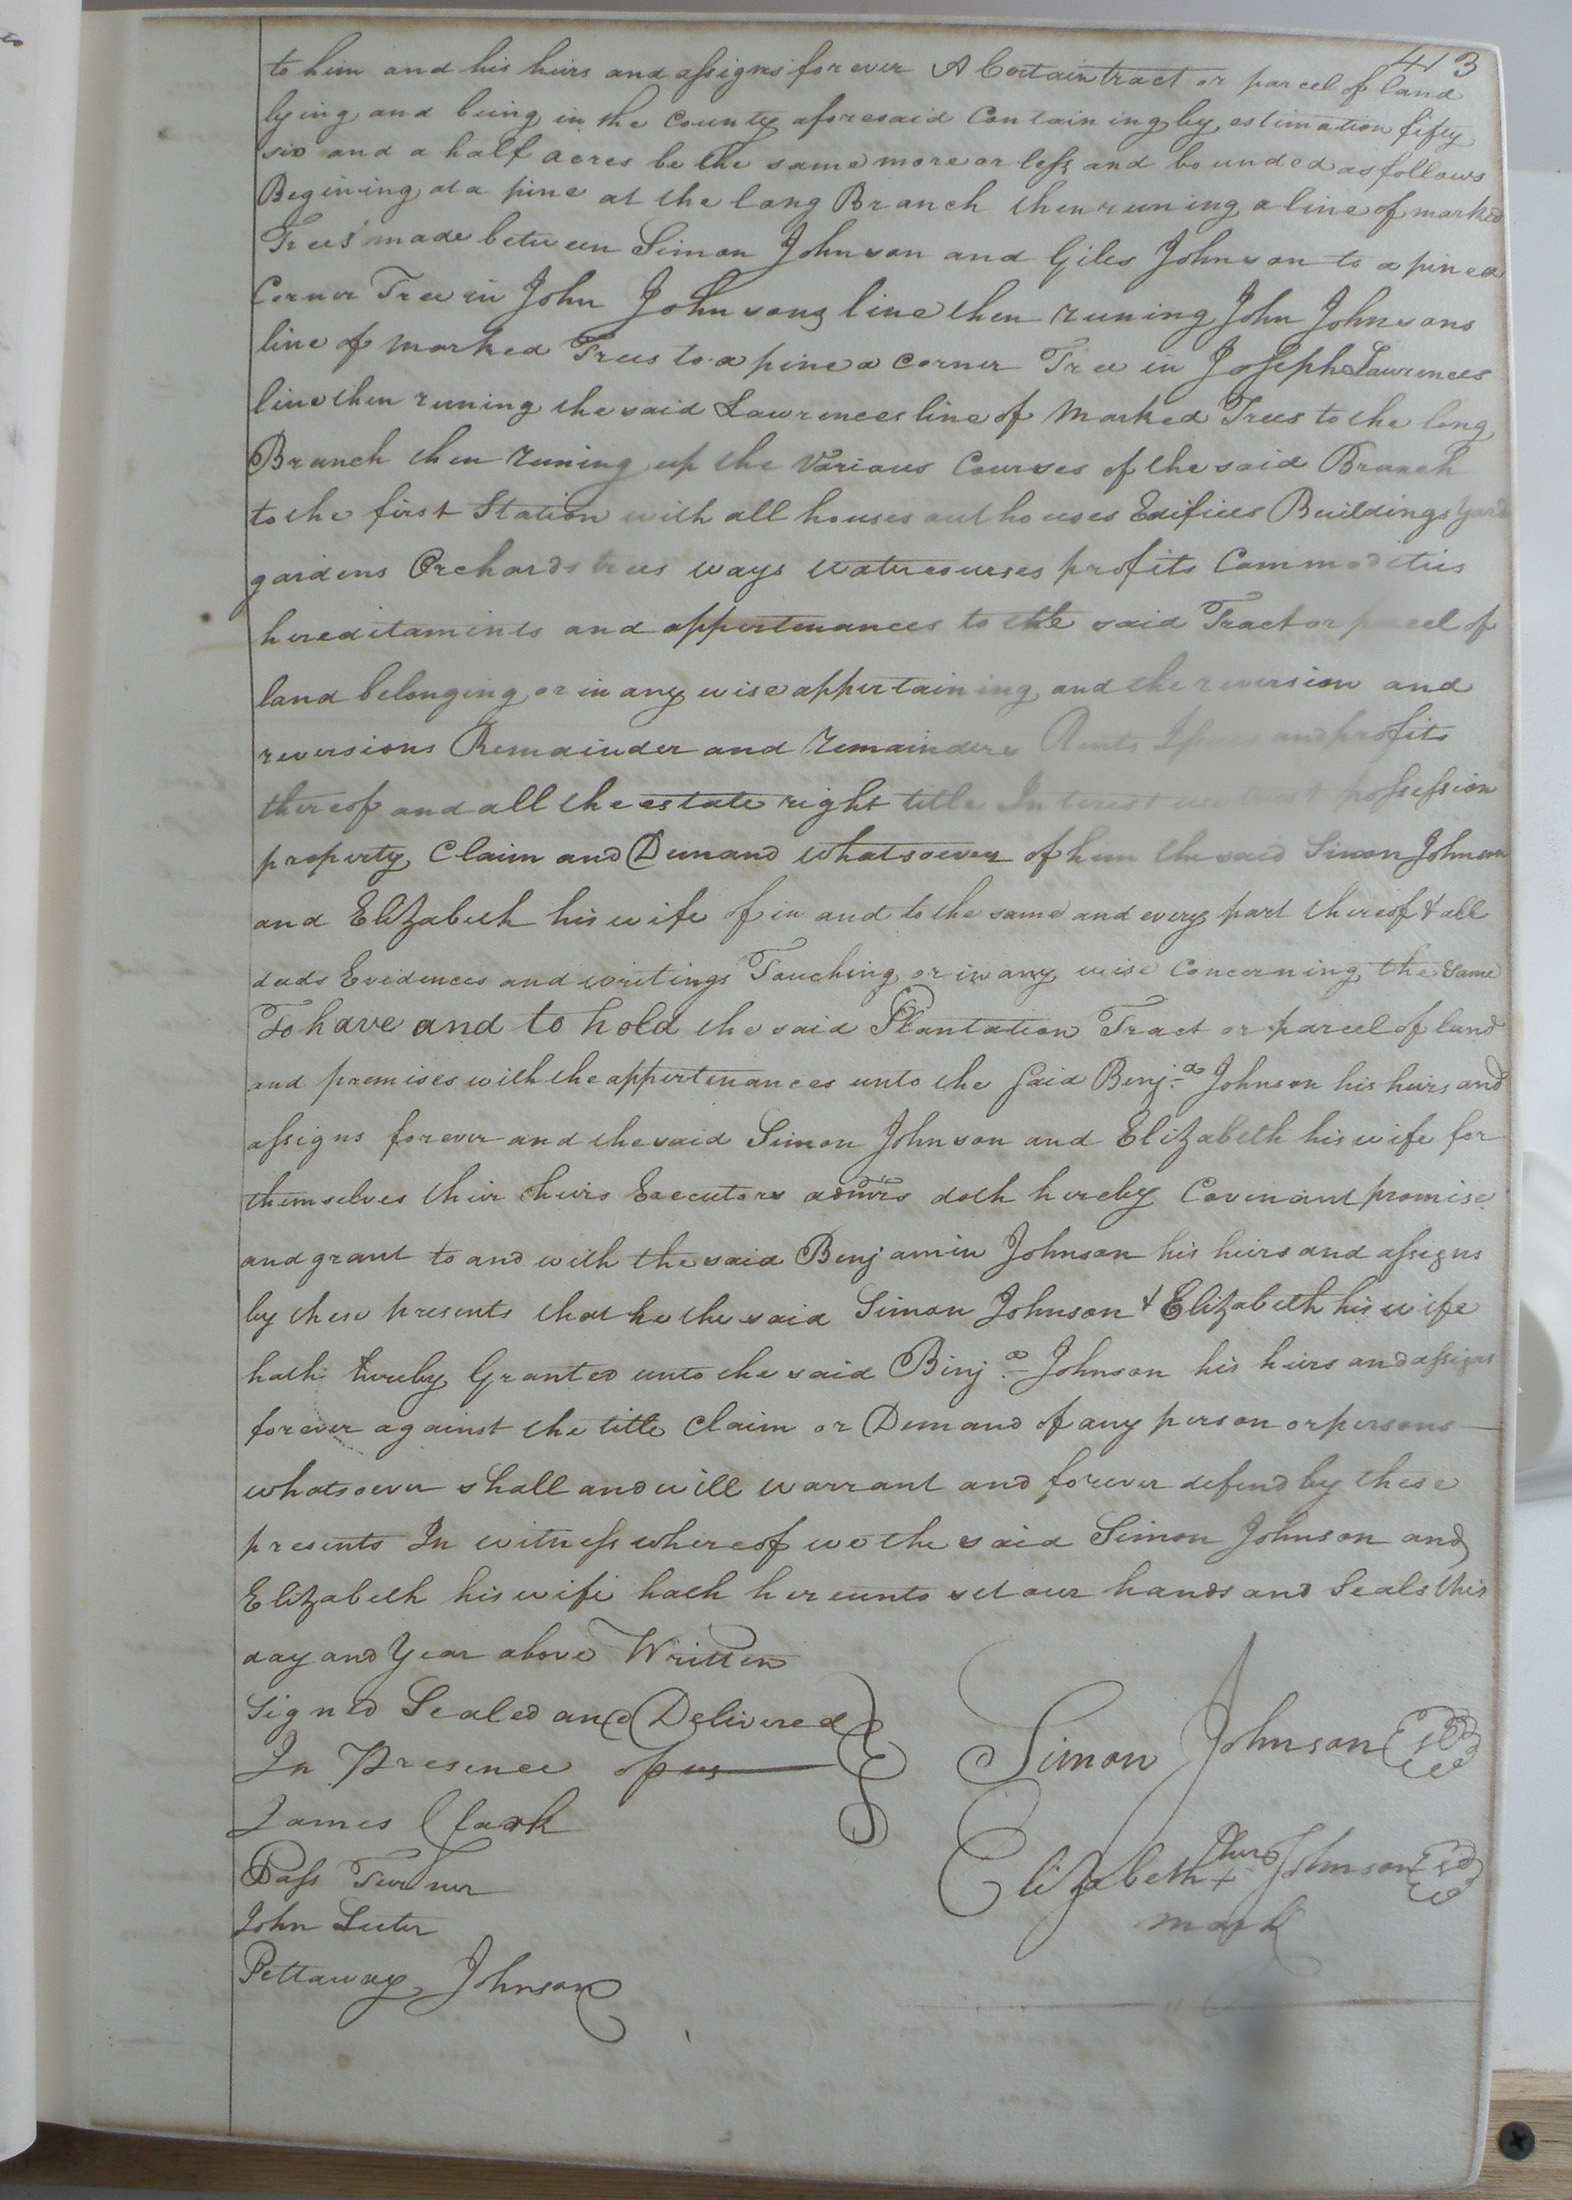 413
to him and his heirs and assigns for ever A Certain tract or parcel of land
lying and being in the County aforesaid Containing by estimation fifty
six and a half acres be the same more or less and bounded as follows
Begining at a pine at the long Branch then runing a line of marked
Trees made between Simon Johnson and Giles Johnson to a pine a
Corner Tree in John Johnsons line then runing John Johnsons
line of Marked Trees to a pine a corner Tree in Joseph Lawrences
line then runing the said Lawrences line of Marked Trees to the long
Branch then runing up the Various Courses of the said Branch
to the first Station with all houses out houses Edifices Buildings yards
gardens Orchards trees ways watercourses profits Commodities
hereditaments and appertenances to the said Tract or parcel of
land belonging or in any wise appertaining and the reversion and
reversions Remainder and remainders Rents Issues and profits
thereof and all the estate right title Interest use possession
property Claim and Demand whatsoever of him the said Simon Johnson
and Elizabeth his wife of in and to the same and every part thereof & all
deeds Evidences and writings Touching or in any wise Concerning the same
To have and to hold the said Plantation Tract or parcel of land
and premises with the appertenances unto the said Benja. Johnson his heirs and
assigns forever and the said Simon Johnson and Elizabeth his wife for
themselves their heirs Executors admrs doth hereby Covenant promise
and grant to and with the said Benjamin Johnson his heirs and assigns
by these presents that he the said Simon Johnson & Elizabeth his wife
hath hereby Granted unto the said Binja. Johnson his heirs and assigns
forever against the title Claim or Demand of any person or persons
whatsoever shall and will warrant and forever defend by these
presents In witness whereof we the said Simon Johnson and
Elizabeth his wife hath hereunto set our hands and Seals this
day and Year above Written
Signed Sealed and Delivered
In Presence of us
Simon Johnson
James Clark
Pass Turner
Elizabeth her x Johnson
mark
John Luter
Pettaway Johnson